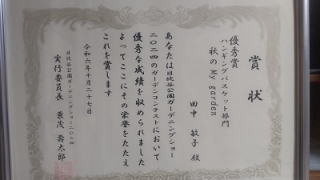 賞状
優秀賞
ハンギングバスケット部門
秋のMy garden
田中 敏子 殿
あなたは日比谷公園ガーデニングショー
二〇二四のガーデンコンテストにおいて
優秀な成績を収められました
よってここにその栄誉をたたえ
これを賞します
令和六年十月二十七日
日比谷公園ガーデニングショー二〇二四
実行委員長 蓑茂 壽太郎